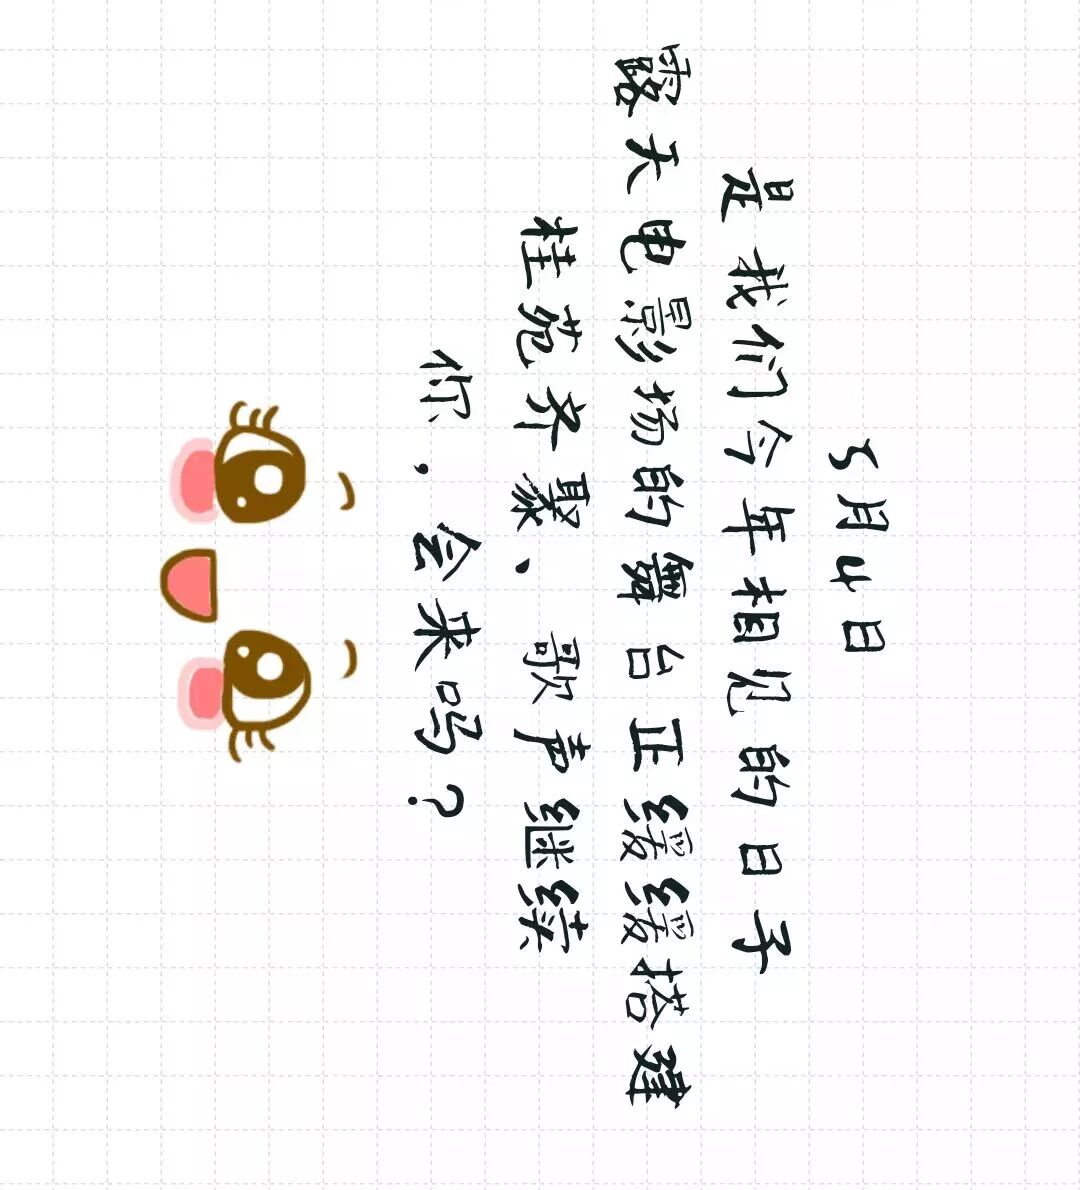 5月4日
是我们今年相见的日子
露天电影场的舞台正缓缓搭建
桂苑齐聚、歌声继续
你，会来吗？